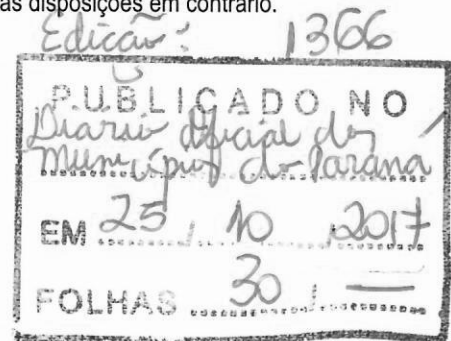 as disposições em contrário.
Edição: 1366
PUBLICADO NO
Diário Oficial dos
Municípios do Paraná
EM 25 / 10 / 2017
FOLHAS 30 / —